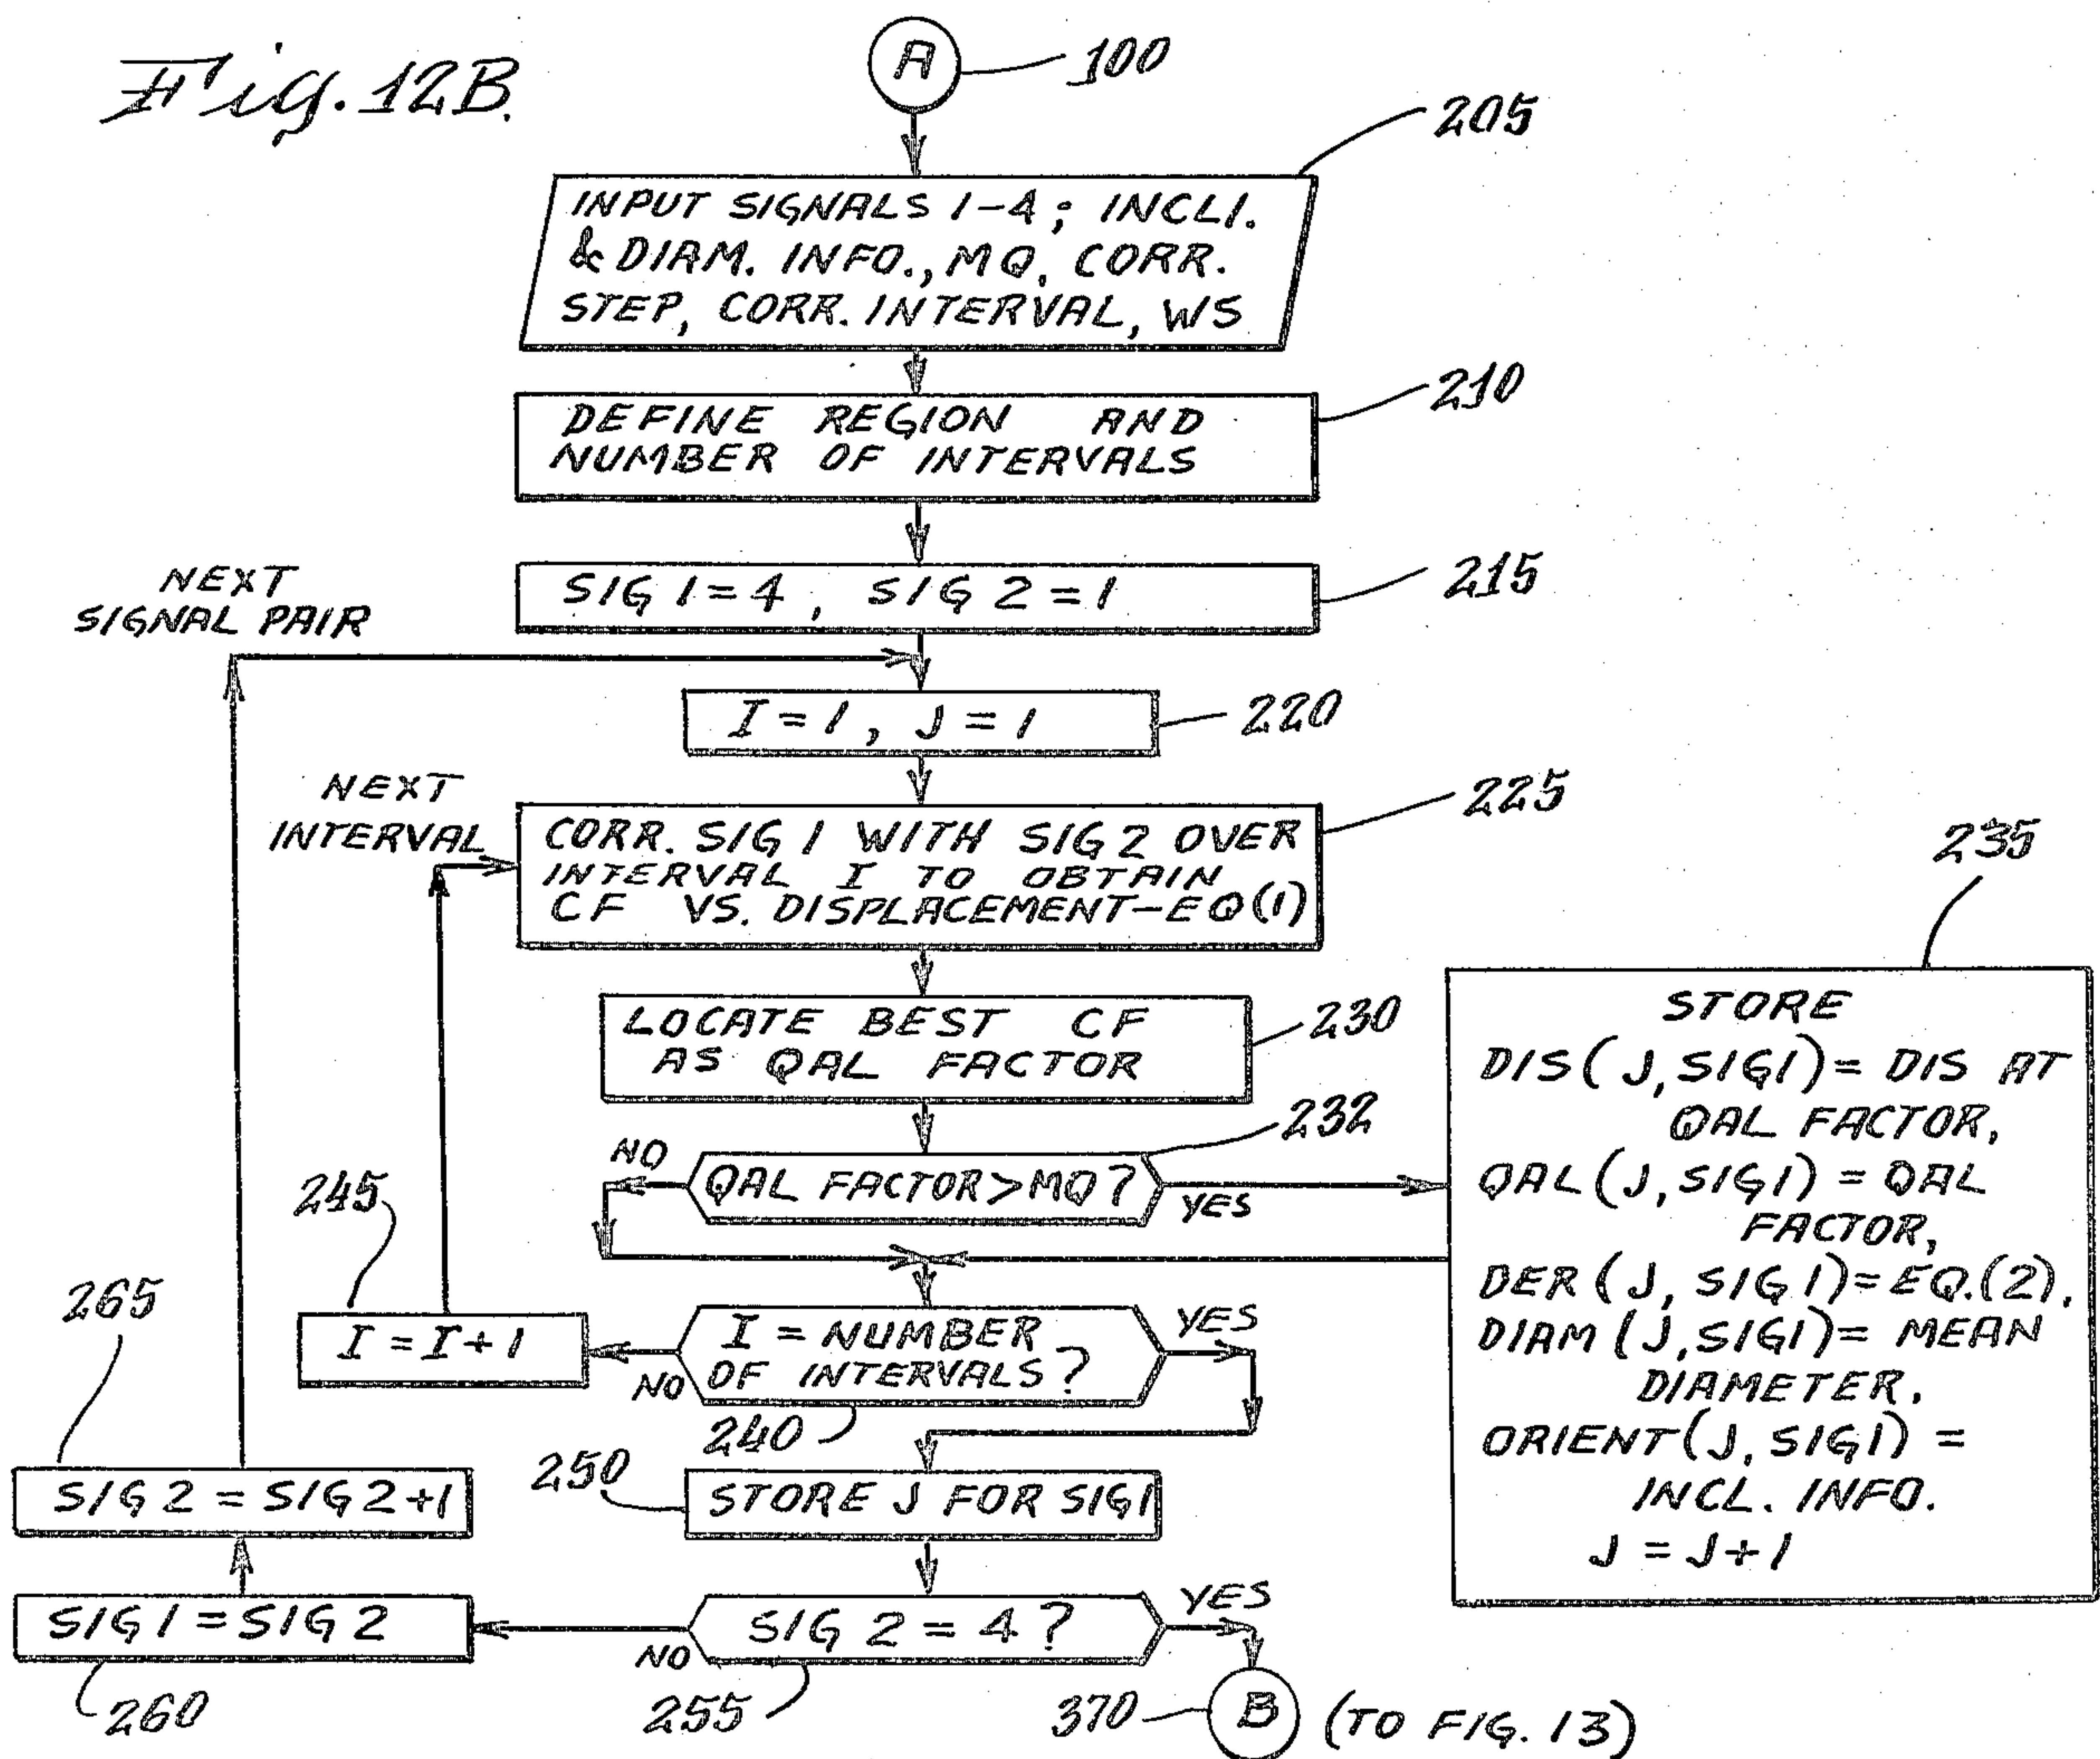 Fig. 12B.
A
100
205
INPUT SIGNALS 1-4; INCLI.
& DIAM. INFO., MQ, CORR.
STEP, CORR. INTERVAL, WS
210
DEFINE REGION AND
NUMBER OF INTERVALS
215
SIG 1 = 4, SIG 2 = 1
NEXT
SIGNAL PAIR
220
I = 1, J = 1
NEXT
INTERVAL
225
CORR. SIG 1 WITH SIG 2 OVER
INTERVAL I TO OBTAIN
CF VS. DISPLACEMENT-EQ(1)
230
LOCATE BEST CF
AS QAL FACTOR
232
NO
QAL FACTOR>MQ?
YES
235
STORE
DIS(J,SIG1)= DIS AT
QAL FACTOR,
QAL(J,SIG1) = QAL
FACTOR,
DER(J, SIG1)=EQ.(2),
DIAM(J,SIG1)= MEAN
DIAMETER,
ORIENT(J,SIG1) =
INCL. INFO.
J = J+1
245
I = I+1
NO
I = NUMBER
OF INTERVALS?
YES
240
250
STORE J FOR SIG1
265
SIG 2 = SIG2+1
260
SIG 1 = SIG 2
NO
SIG 2 = 4?
YES
255
370
B
(TO FIG. 13)